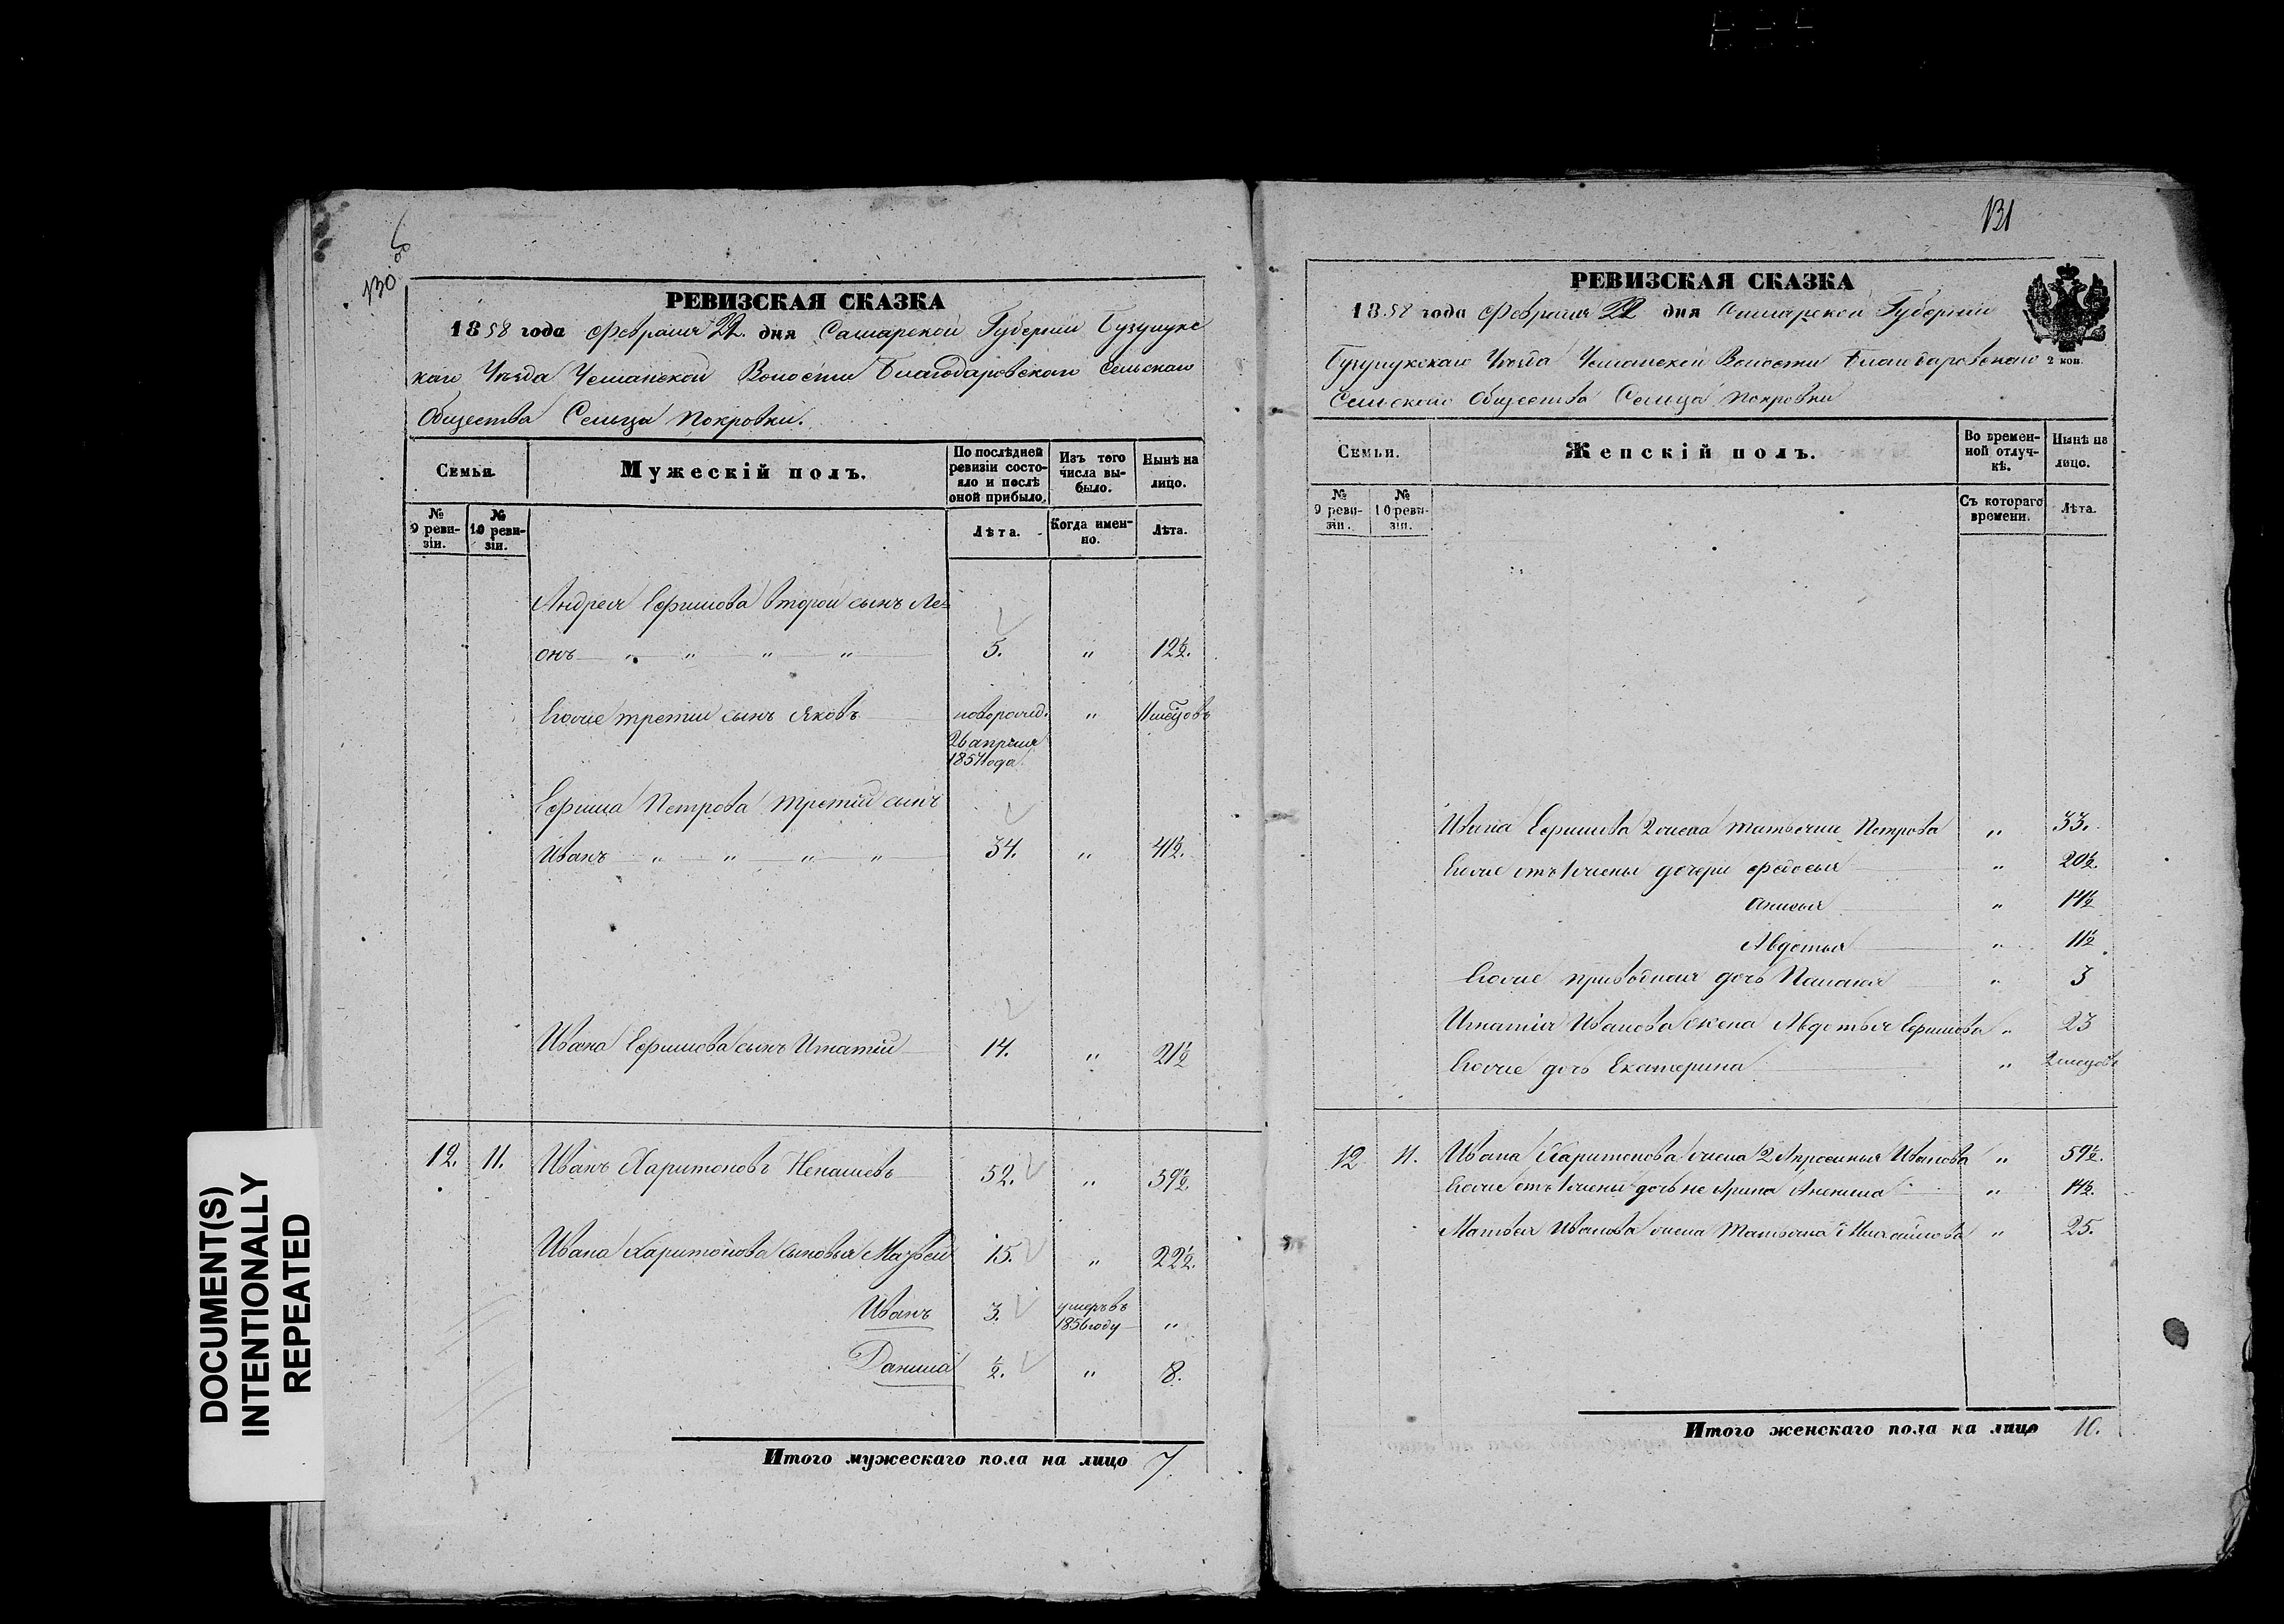 130 об
РЕВИЗСКАЯ СКАЗКА
1858 года Февраля 22. дня Самарской Губернiи Бузулукс
каго Уѣзда Волости Благодаровскаго Сельскаго
Общества Сельца Покровки.
Семьи.
Мужескій полъ.
По послѣдней ревизіи состояло и послѣ оной прибыло.
Изъ того числа выбыло.
Нынѣ на лицо.
№ 9 ревизіи.
№ 10 ревизіи.
Лѣта.
Когда именно.
Лѣта.
Андрея Ефимова второй сынъ Ле=
онъ " " " " 5. " 12½.
Егоже третiй сынъ Яковъ новорожд. " 11 мѣсцовъ
26 апрѣля
1857 года
Ефима Петрова третiй сынъ
Иванъ " " " " 34. " 41½.
Ивана Ефимова сынъ Игнатiй 14. " 21½
12. 11. Иванъ Харитоновъ Ненашевъ 52. " 59½
Ивана Харитонова сыновья Матвей 15. " 22½.
Иванъ 3. умеръ въ
1856 году "
Данила ½. " 8.
Итого мужескаго пола на лицо 7.
131
РЕВИЗСКАЯ СКАЗКА
1858 года Февраля 22 дня Самарской Губернiи
Бузулукскаго Уѣзда Волости Благодаровскаго
2 коп.
Сельскаго Общества Сельца Покровки
Семьи.
Женскій полъ.
Во временной отлучкѣ.
Нынѣ на лицо.
№ 9 ревизіи.
№ 10 ревизіи.
Съ котораго времени.
Лѣта.
Ивана Ефимова 2 жена Татьяна Петрова " 33.
Егоже отъ 1 жены дочери Федосья " 20½.
Анисья " 14½
Авдотья " 11½
Егоже приводная дочь Пелагея " 3
Игнатiя Иванова жена Авдотья Ефимова " 23
Егоже дочь Екатерина " 2 месцовъ
12 11. Ивана Харитонова жена 2 Апросинья Иванова " 59½.
Егоже отъ 1 жены дочь Арина " 14½.
Матвея Иванова жена Татьяна Михайлова " 25.
Итого женскаго пола на лицо 10.
DOCUMENT(S)
INTENTIONALLY
REPEATED